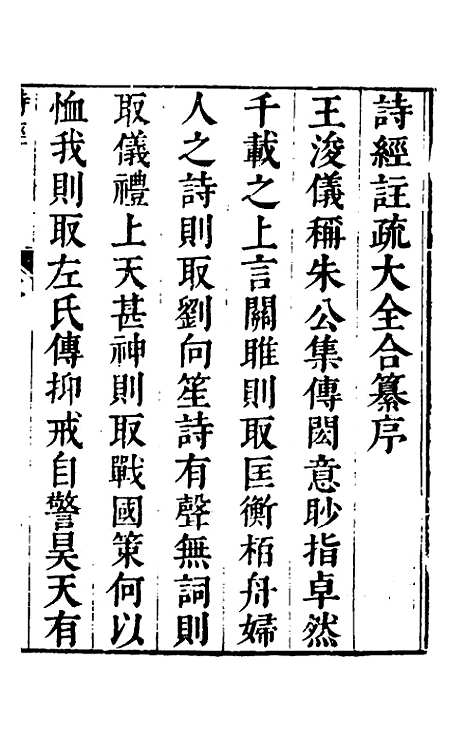 詩經註疏大全合纂序
王浚儀稱朱公集傳閎意眇指卓然
千載之上言關雎則取匡衡栢舟婦
人之詩則取劉向笙詩有聲無詞則
取儀禮上天甚神則取戰國策何以
恤我則取左氏傳抑戒自警昊天有
詩經